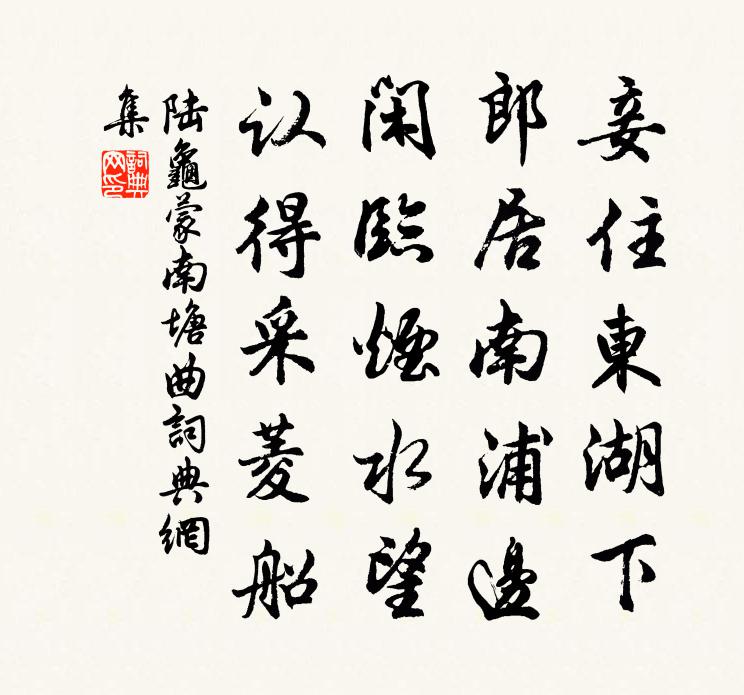 妾住東湖下
郎居南浦邊
閑臨煙水望
认得采菱船
陆龜蒙南塘曲詞典網
集
詞典
网印